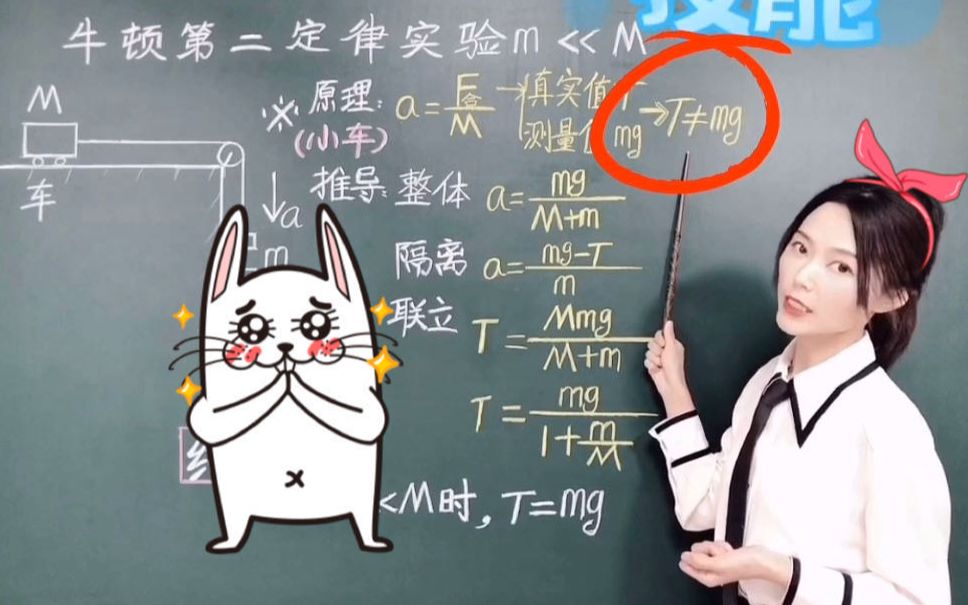 技能
牛顿第二定律实验m<<M
M
车
a
m
※原理: a=F合/M →真实值T
(小车) 测量值mg →T≠mg
推导: 整体 a=mg/M+m
隔离 a=mg-T/m
联立 T=Mmg/M+m
T=mg/1+m/M
<M时, T=mg